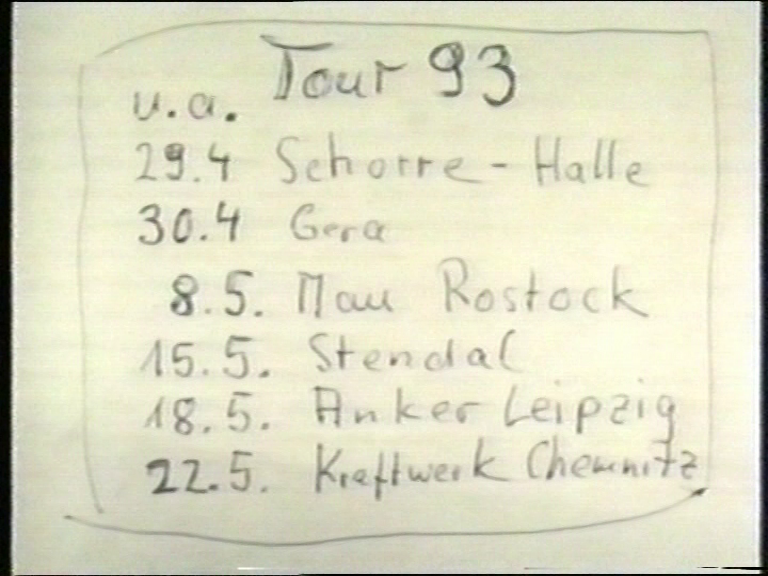 Tour 93
u.a.
29.4 Schorre - Halle
30.4 Gera
8.5. Mau Rostock
15.5. Stendal
18.5. Anker Leipzig
22.5. Kraftwerk Chemnitz